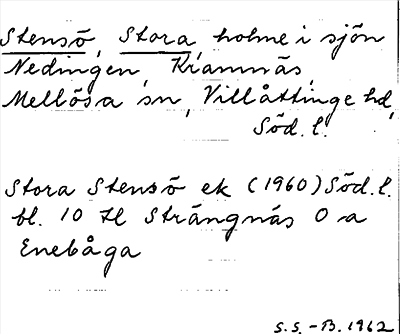 Stensö, Stora, holme i sjön
Nedingen, Kramnäs,
Mellösa sn, Villåttinge hd,
Söd. l.
Stora Stensö ek (1960) Söd. l.
bl. 10 tl Strängnäs O a
Enebåga
S.S. - B. 1962